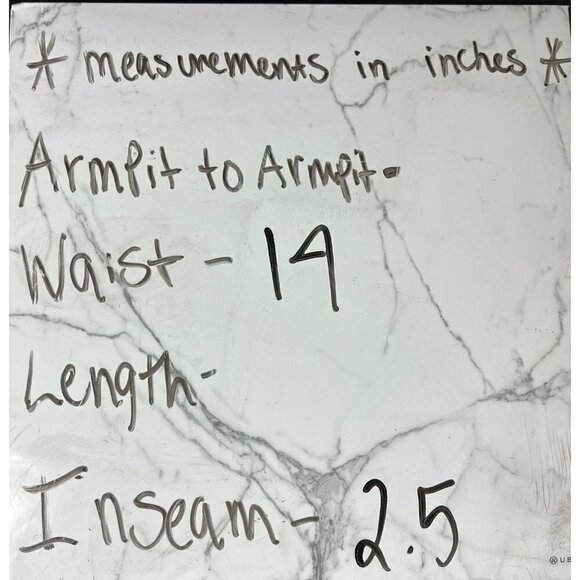 * measurements in inches *
Armpit to Armpit-
Waist - 14
Length-
Inseam - 2.5